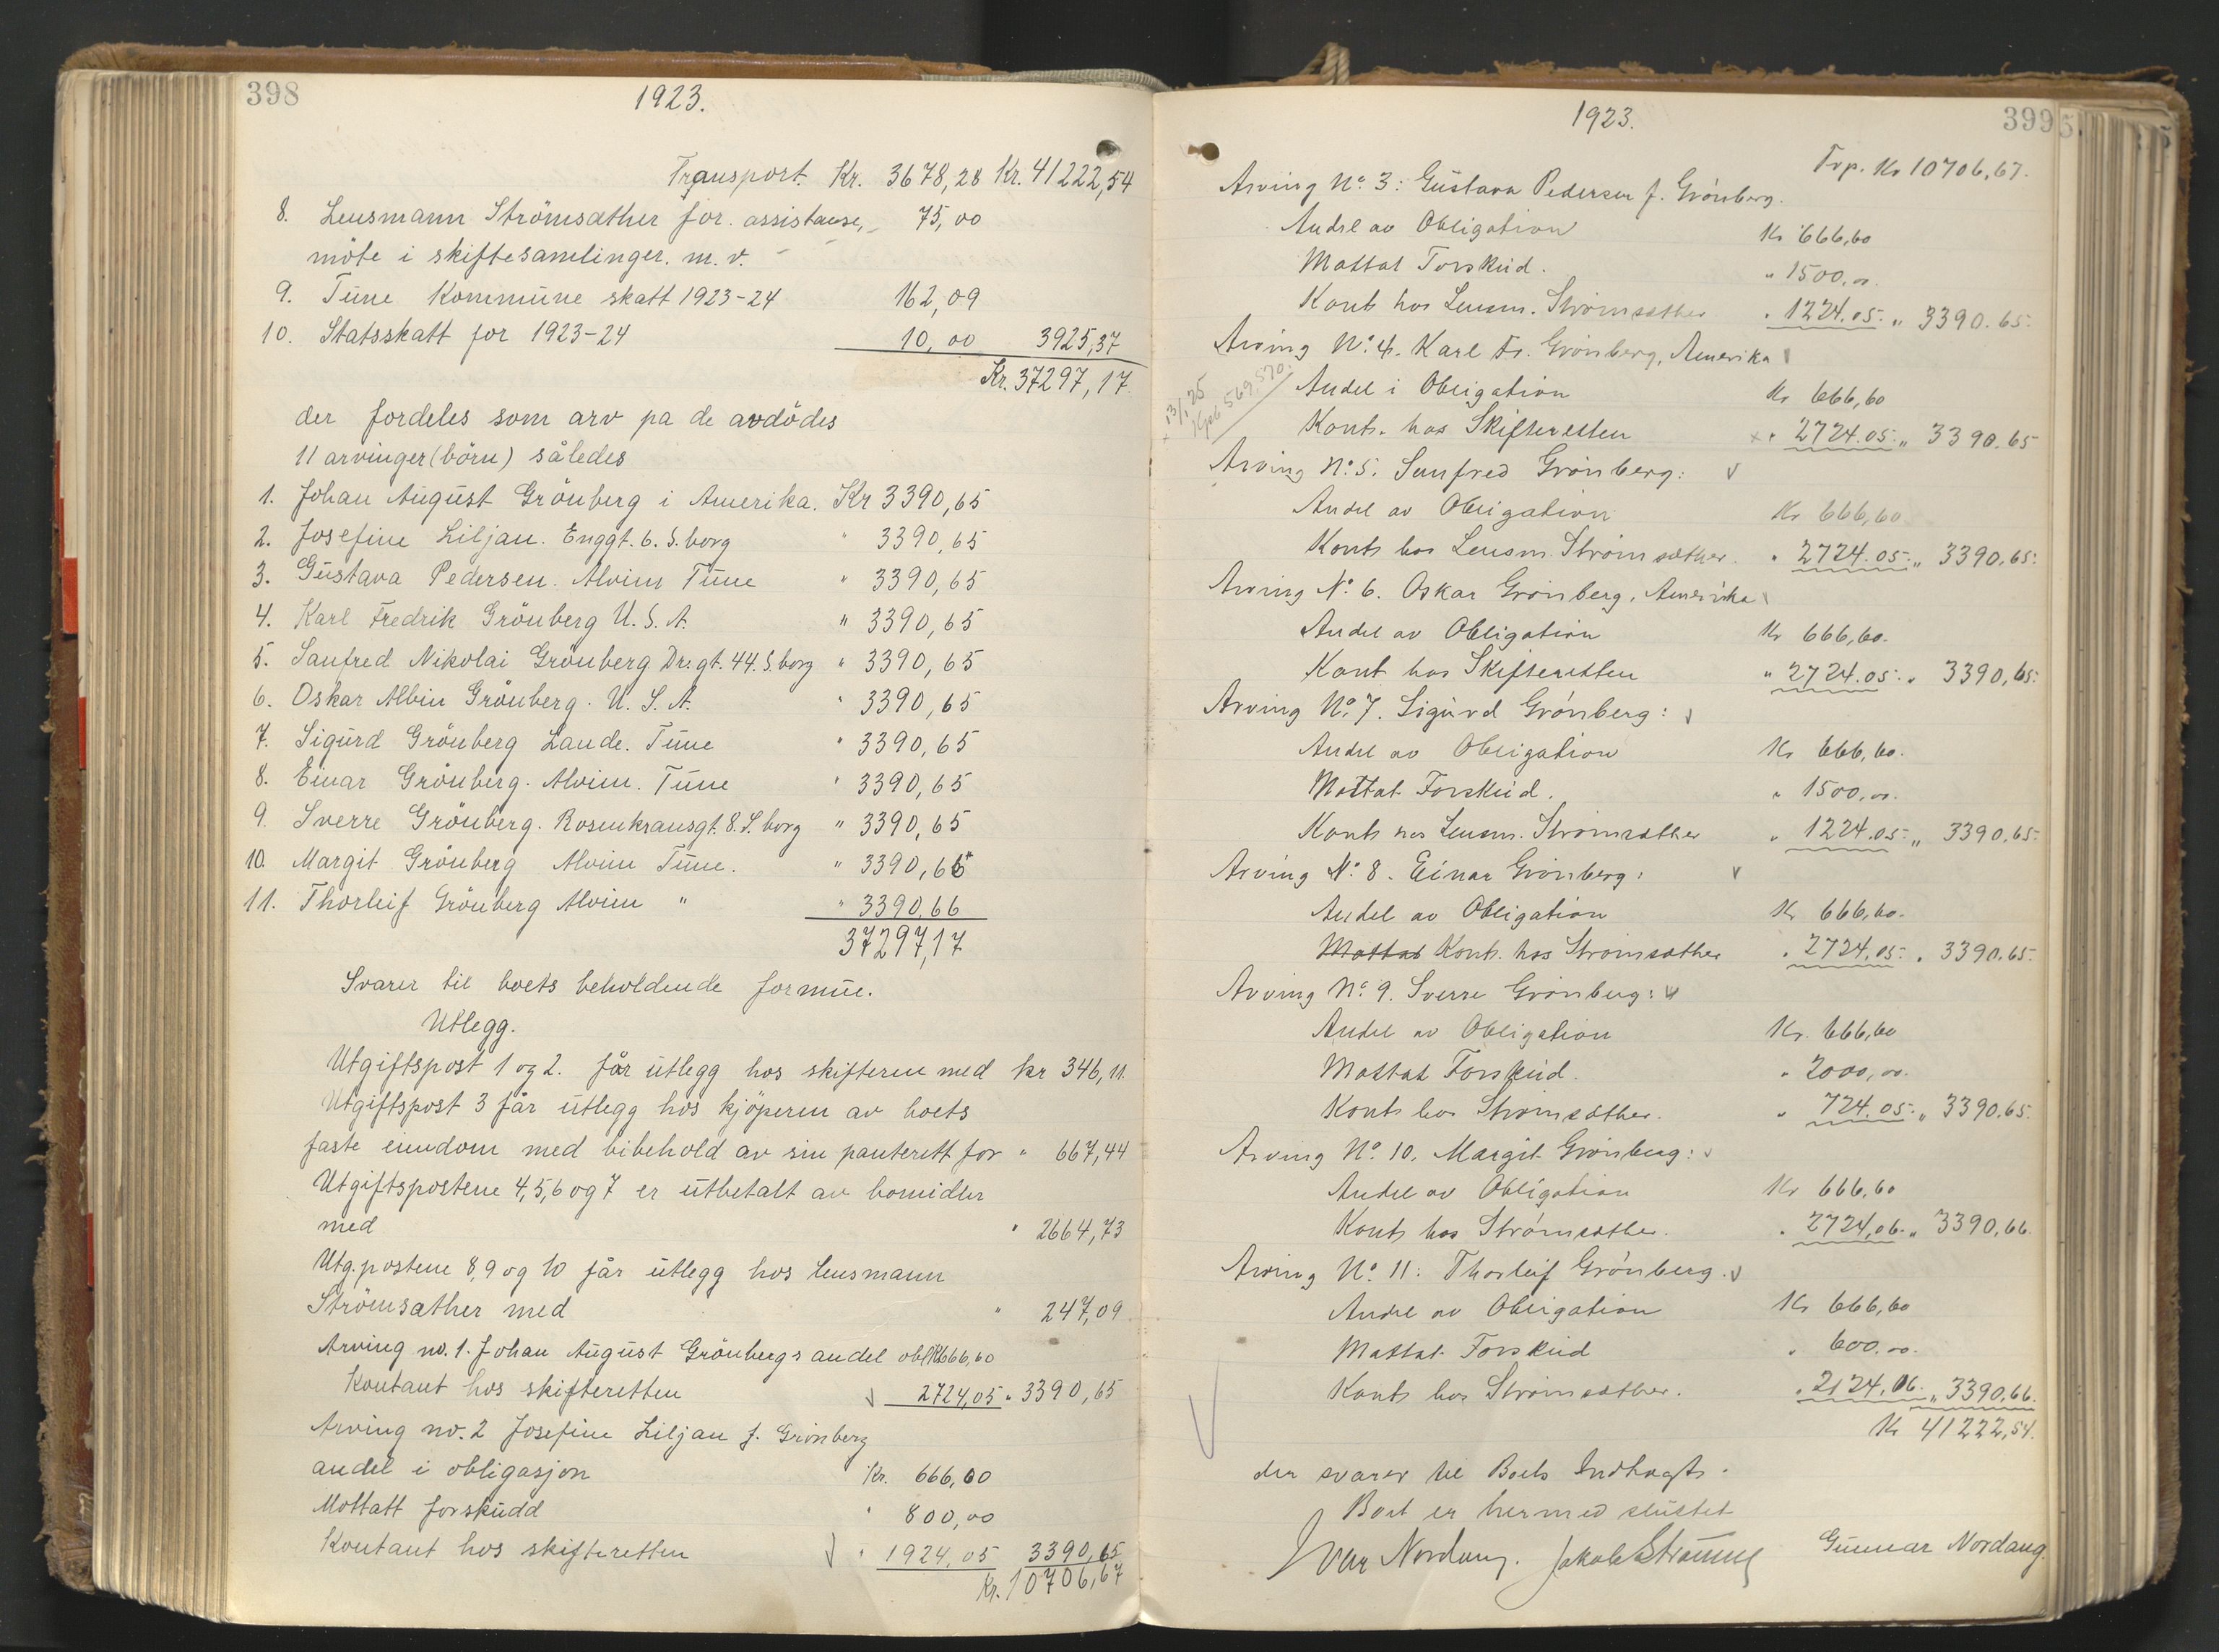 398
1923.
Transport. Kr. 3678,28 Kr. 41222,54
8. Lensmann Strömsæther for assistanse, 75,00
möte i skiftesamlinger. m. v.
9. Tune Kommune skatt 1923-24 162,09
10. Statsskatt for 1923-24 10,00 3925,37
Kr. 37297,17
der fordeles som arv pa de avdödes
11 arvinger (börn) således
1. Johan August Grönberg i Amerika. Kr 3390,65
2. Josefine Liljan. Enggt. 6. S.borg " 3390,65
3. Gustava Pedersen. Alvim Tune " 3390,65
4. Karl Fredrik Grönberg U. S. A. " 3390,65
5. Sanfred Nikolai Grönberg Dr.gt. 44. S.borg " 3390,65
6. Oskar Albin Grönberg. U. S. A. " 3390,65
7. Sigurd Grönberg Lande. Tune " 3390,65
8. Einar Grönberg. Alvim. Tune " 3390,65
9. Sverre Grönberg. Rosenkransgt. 8. S.borg " 3390,65
10. Margit Grönberg Alvim Tune. " 3390,66
11. Thorleif Grönberg Alvim " " 3390,66
37297,17
Svarer til boets beholdende formue.
Utlegg.
Utgiftspost 1 og 2. får utlegg hos skifteren med kr 346,11.
Utgiftspost 3 får utlegg hos kjöperen av boets
faste eiendom med bibehold av sin panterett for " 667,44
Utgiftspostene 4,5,6 og 7 er utbetalt av bomidler
med " 2664,73
Utg.postene 8,9 og 10 får utlegg hos lensmann
Strömsæther med " 247,09
Arving no. 1. Johan August Grönbergs andel obl. Kr 666,60
Kontant hos skifteretten 2724,05 " 3390,65
Arving no. 2 Josefine Liljan f. Grönberg
andel i obligasjon Kr. 666,60
Mottatt forskudd " 800,00
Kontant hos skifteretten " 1924,05 3390,65
Kr. 10706,67
399
1923.
Trp. Kr 10706,67.
Arving No. 3: Gustava Pedersen f. Grönberg.
Andel av Obligation Kr 666,60
Mottat Forskud. " 1500,00.
Kont hos Lensm. Strömsæther " 1224.05. " 3390.65.
Arving No. 4. Karl Fr. Grönberg, Amerika
Andel i Obligation Kr 666,60
Kont. hos Skifteretten " 2724.05. " 3390.65
Arving No. 5. Sanfred Grönberg:
Andel av Obligation Kr 666,60
Kont hos Lensm. Strömsæther. " 2724.05. " 3390,65.
Arving No. 6. Oskar Grönberg, Amerika
Andel av Obligation Kr 666,60.
Kont hos Skifteretten " 2724.05. " 3390,65.
Arving No. 7. Sigurd Grönberg:
Andel av Obligation Kr 666,60.
Mottat Forskud. " 1500,00.
Kont hos Lensm. Strömsæther " 1224.05. " 3390,65.
Arving No. 8. Einar Grönberg:
Andel av Obligation Kr 666,60.
Mottat Kont. hos Strömsæther " 2724,05. " 3390.65.
Arving No. 9. Sverre Grönberg:
Andel av Obligation Kr. 666,60
Mottat Forskud. " 2000,00.
Kont hos Strömsæther. " 724.05. " 3390.65.
Arving No. 10. Margit Grönberg:
Andel av Obligation Kr 666,60
Kont hos Strömsæther. " 2724,06. " 3390,66.
Arving No. 11: Thorleif Grönberg.
Andel av Obligation Kr 666,60
Mottat Forskud " 600.00.
Kont hos Strömsæther. " 2124,06. " 3390,66.
Kr 41222,54.
der svarer til Boets Indtægt.
Boet er hermed sluttet
Ivar Nordaug. Jakob Strömne Gunnar Nordaug